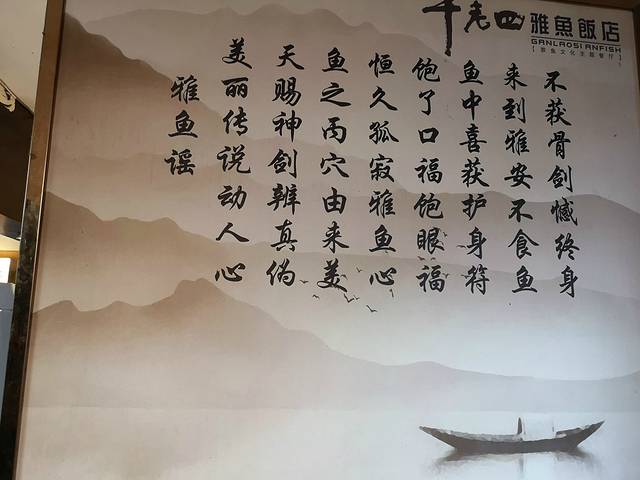 干老四
雅魚飯店
GANLAOSI ANFISH
雅鱼谣
美丽传说动人心
天赐神剑辨真伪
鱼之丙穴由来美
恒久孤寂雅鱼心
饱了口福饱眼福
鱼中喜获护身符
来到雅安不食鱼
不获骨剑憾终身